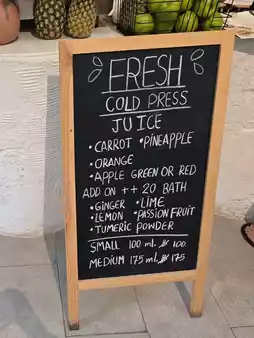 FRESH
COLD PRESS
JUICE
• CARROT • PINEAPPLE
• ORANGE
• APPLE GREEN OR RED
ADD ON ++ 20 BATH
• GINGER • LIME
• LEMON • PASSION FRUIT
• TUMERIC POWDER
SMALL 100 ml. ฿ 100.
MEDIUM 175 ml. ฿ 175